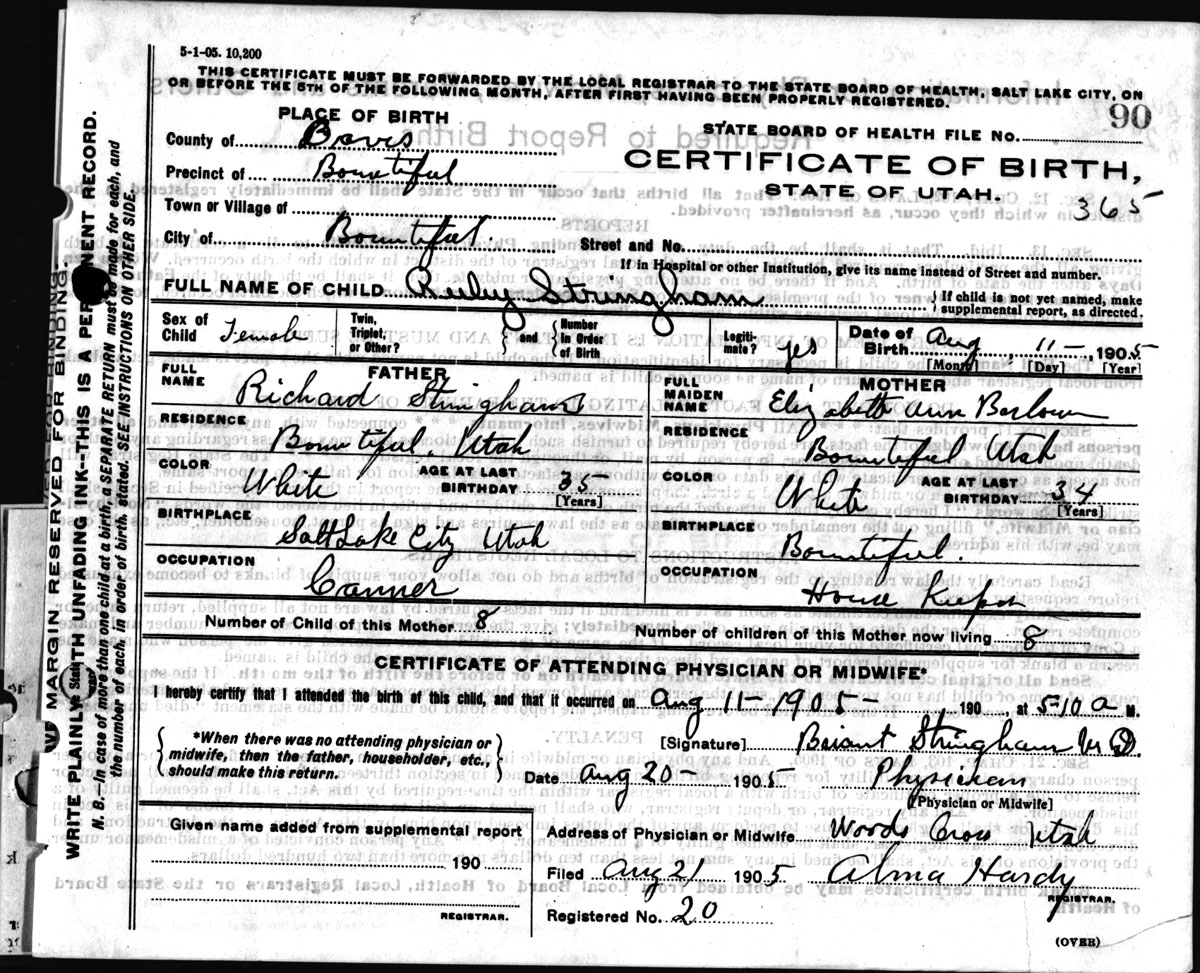 5-1-05. 10,200
THIS CERTIFICATE MUST BE FORWARDED BY THE LOCAL REGISTRAR TO THE STATE BOARD OF HEALTH, SALT LAKE CITY, ON
OR BEFORE THE 5TH OF THE FOLLOWING MONTH, AFTER FIRST HAVING BEEN PROPERLY REGISTERED.
90
PLACE OF BIRTH
STATE BOARD OF HEALTH FILE No.
County of Davis
CERTIFICATE OF BIRTH,
Precinct of Bountiful
STATE OF UTAH.
365
Town or Village of
City of Bountiful. Street and No.
If in Hospital or other Institution, give its name instead of Street and number.
FULL NAME OF CHILD Ruby Stringham } If child is not yet named, make
supplemental report, as directed.
Sex of Child Female
Twin, Triplet, or Other? { and } Number In Order of Birth
Legiti-mate? yes
Date of Birth Aug 11- , 1905
[Month] [Day] [Year]
FATHER
FULL NAME Richard Stringham
RESIDENCE
Bountiful. Utah
COLOR White AGE AT LAST BIRTHDAY 35
[Years]
BIRTHPLACE
Salt Lake City Utah
OCCUPATION
Canner
MOTHER
FULL MAIDEN NAME Elizabeth Ann Barlow
RESIDENCE
Bountiful Utah
COLOR White AGE AT LAST BIRTHDAY 34
[Years]
BIRTHPLACE
Bountiful.
OCCUPATION
House Keeper
Number of Child of this Mother 8 Number of children of this Mother now living 8
CERTIFICATE OF ATTENDING PHYSICIAN OR MIDWIFE*
I hereby certify that I attended the birth of this child, and that it occurred on Aug 11-1905- , 190 , at 5-10 a M.
{ *When there was no attending physician or
midwife, then the father, householder, etc.,
should make this return. }
[Signature] Briant Stringham M.D.
Date Aug 20- 1905 Physician
[Physician or Midwife]
Given name added from supplemental report
190
REGISTRAR.
Address of Physician or Midwife Woods Cross Utah
Filed Aug 21 1905 Alma Hardy
REGISTRAR.
Registered No. 20
(OVER)
MARGIN RESERVED FOR BINDING.
WRITE PLAINLY WITH UNFADING INK--THIS IS A PERMANENT RECORD.
N. B.--In case of more than one child at a birth, a SEPARATE RETURN must be made for each, and
the number of each, in order of birth, stated. SEE INSTRUCTIONS ON OTHER SIDE.